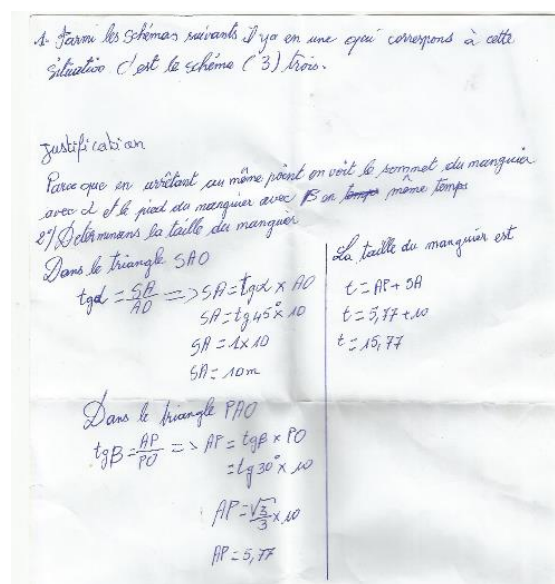 1- Parmi les schémas suivants il ya en une qui correspons à cette
situatio c'est le schéma (3) trois.
Justification
Parce que en arrêtant au même point on voit le sommet du manguier
avec α et le pied du manguier avec β en même temps
2°/ Determinons la taille du manguier
Dans le triangle SAO
tgα = SA/AO => SA = tgα x AO
SA = tg45° x 10
SA = 1x10
SA = 10m
Dans le triangle PAO
tgβ = AP/PO => AP = tgβ x PO
= tg30° x 10
AP = √3/3 x 10
AP = 5,77
La taille du manguier est
t = AP + SA
t = 5,77 + 10
t = 15,77